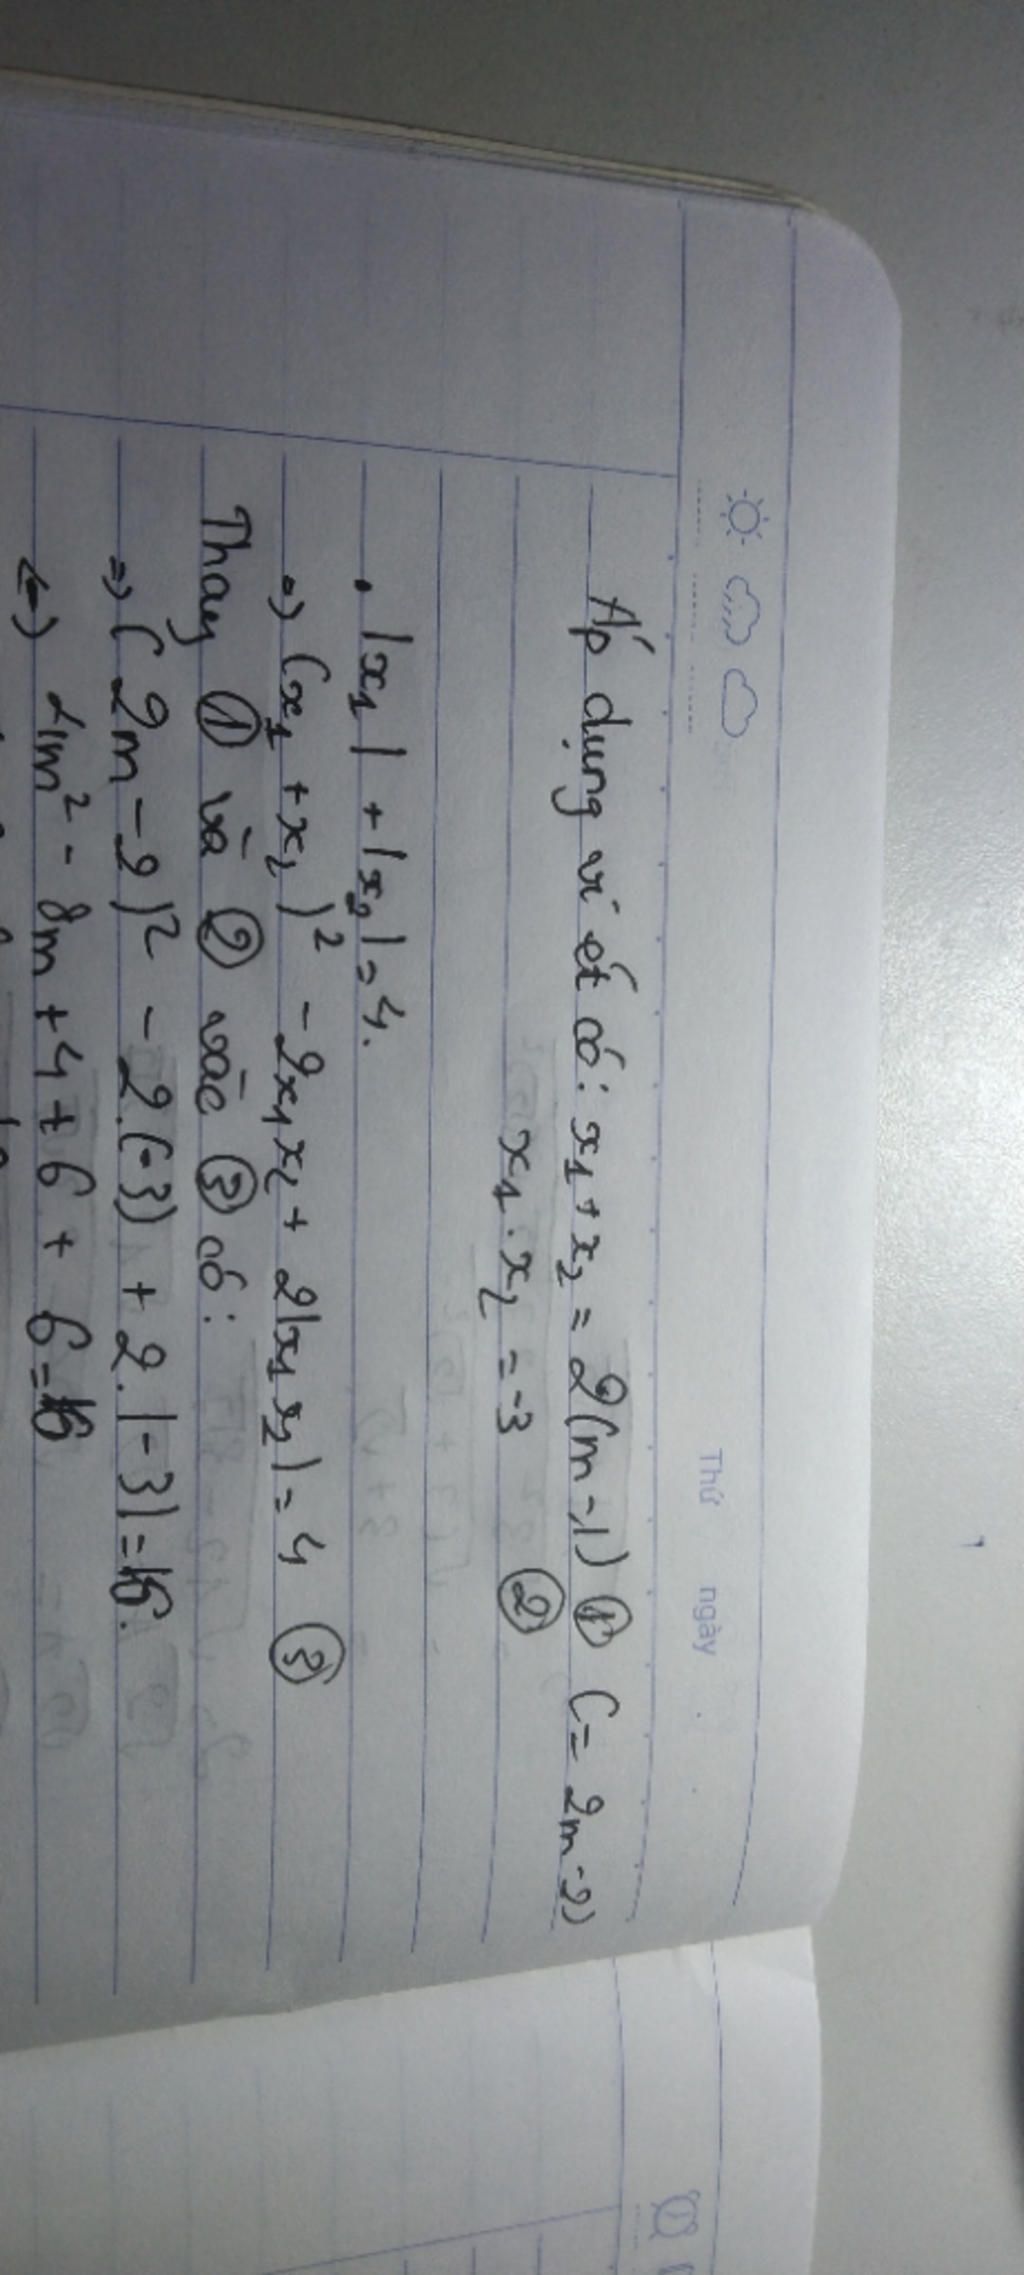 Thứ ngày
Áp dụng vi ét có: x₁ + x₂ = 2(m - 1) ① (= 2m - 2)
x₁ . x₂ = -3 ②
• |x₁| + |x₂| = 4.
=> (x₁ + x₂)² - 2x₁x₂ + 2|x₁x₂| = 4 ③
Thay ① và ② vào ③ có:
=> (2m - 2)² - 2.(-3) + 2.|-3| = 16.
<-> 4m² - 8m + 4 + 6 + 6 = 16